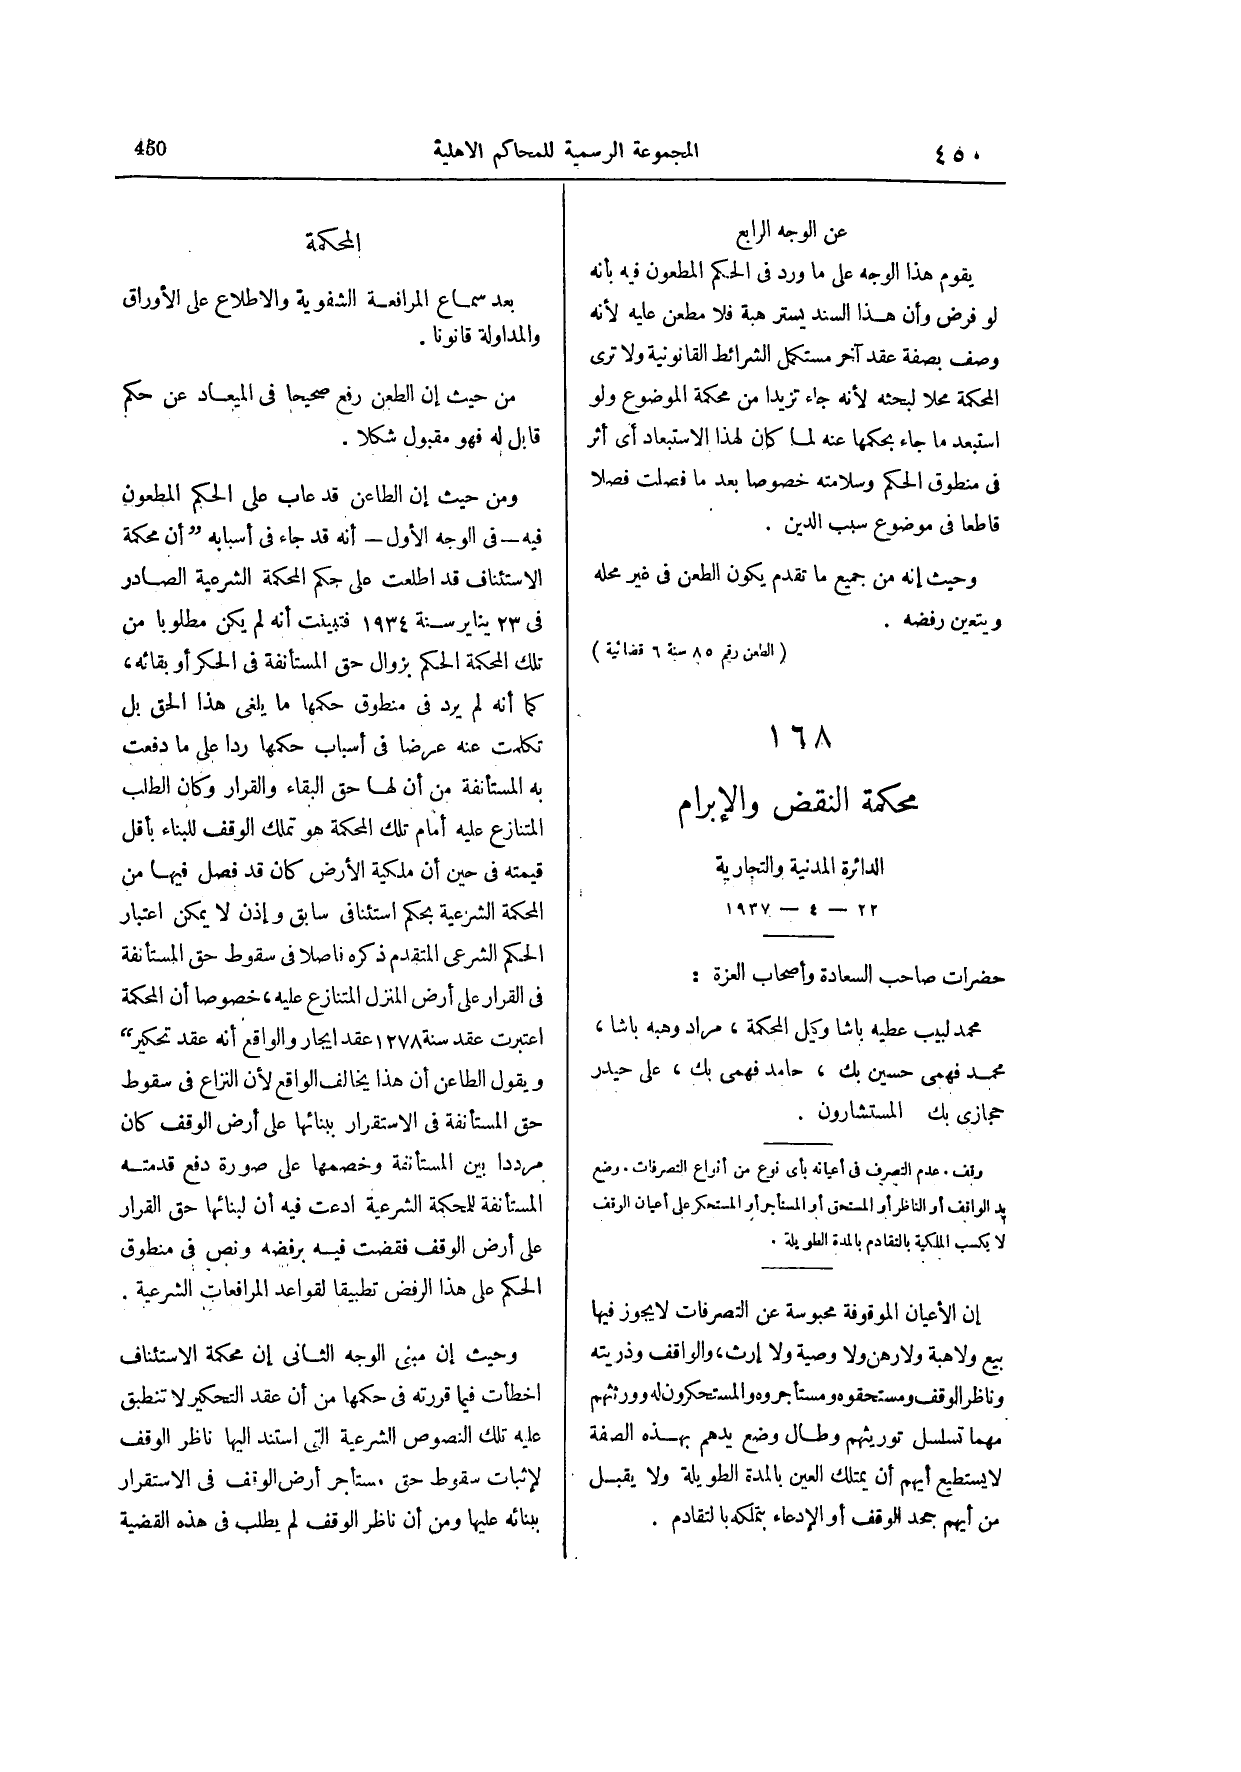 ٤٥٠
المجموعة الرسمية للمحاكم الاهلية
450
عن الوجه الرابع
يقوم هذا الوجه على ما ورد فى الحكم المطعون فيه بأنه
لو فرض وأن هذا السند يستر هبة فلا مطعن عليه لأنه
وصف بصفة عقد آخر مستكمل الشرائط القانونية ولا ترى
المحكمة محلا لبحثه لأنه جاء تزيدا من محكمة الموضوع ولو
استبعد ما جاء بحكمها عنه لما كان لهذا الاستبعاد أى أثر
فى منطوق الحكم وسلامته خصوصا بعد ما فصلت فصلا
قاطعا فى موضوع سبب الدين .
وحيث إنه من جميع ما تقدم يكون الطعن فى غير محله
ويتعين رفضه .
( الطعن رقم ٨٥ سنة ٦ قضائية )
١٦٨
محكمة النقض والإبرام
الدائرة المدنية والتجارية
٢٢ — ٤ — ١٩٣٧
حضرات صاحب السعادة وأصحاب العزة :
محمد لبيب عطيه باشا وكيل المحكمة ، مراد وهبه باشا ،
محمد فهمى حسين بك ، حامد فهمى بك ، على حيدر
حجازى بك المستشارون .
وقف . عدم التصرف فى أعيانه بأى نوع من أنواع التصرفات . وضع
يد الواقف أو الناظر أو المستحق أو المستأجر أو المستحكر على أعيان الوقف
لا يكسب الملكية بالتقادم بالمدة الطويلة .
إن الأعيان الموقوفة محبوسة عن التصرفات لا يجوز فيها
بيع ولا هبة ولا رهن ولا وصية ولا إرث، والواقف وذريته
وناظر الوقف ومستحقوه ومستأجروه والمستحكرون له وورثتهم
مهما تسلسل توريثهم وطال وضع يدهم بهذه الصفة
لا يستطيع أيهم أن يمتلك العين بالمدة الطويلة ولا يقبل
من أيهم جحد الوقف أو الإدعاء بتملكه بالتقادم .
المحكمة
بعد سماع المرافعة الشفوية والاطلاع على الأوراق
والمداولة قانونا .
من حيث إن الطعن رفع صحيحا فى الميعاد عن حكم
قابل له فهو مقبول شكلا .
ومن حيث إن الطاعن قد عاب على الحكم المطعون
فيه — فى الوجه الأول — أنه قد جاء فى أسبابه ”أن محكمة
الاستئناف قد اطلعت على حكم المحكمة الشرعية الصادر
فى ٢٣ يناير سنة ١٩٣٤ فتبينت أنه لم يكن مطلوبا من
تلك المحكمة الحكم بزوال حق المستأنفة فى الحكر أو بقائه،
كما أنه لم يرد فى منطوق حكمها ما يلغى هذا الحق بل
تكلمت عنه عرضا فى أسباب حكمها ردا على ما دفعت
به المستأنفة من أن لها حق البقاء والقرار وكان الطلب
المتنازع عليه أمام تلك المحكمة هو تملك الوقف للبناء بأقل
قيمته فى حين أن ملكية الأرض كان قد فصل فيها من
المحكمة الشرعية بحكم استئنافى سابق وإذن لا يمكن اعتبار
الحكم الشرعى المتقدم ذكره ناصلا فى سقوط حق المستأنفة
فى القرار على أرض المنزل المتنازع عليه، خصوصا أن المحكمة
اعتبرت عقد سنة ١٢٧٨ عقد ايجار والواقع أنه عقد تحكير“
ويقول الطاعن أن هذا يخالف الواقع لأن النزاع فى سقوط
حق المستأنفة فى الاستقرار ببنائها على أرض الوقف كان
مرددا بين المستأنفة وخصمها على صورة دفع قدمته
المستأنفة للمحكمة الشرعية ادعت فيه أن لبنائها حق القرار
على أرض الوقف فقضت فيه برفضه ونص فى منطوق
الحكم على هذا الرفض تطبيقا لقواعد المرافعات الشرعية .
وحيث إن مبنى الوجه الثانى إن محكمة الاستئناف
اخطأت فيما قررته فى حكمها من أن عقد التحكير لا تنطبق
عليه تلك النصوص الشرعية التى استند اليها ناظر الوقف
لإثبات سقوط حق مستأجر أرض الوقف فى الاستقرار
ببنائه عليها ومن أن ناظر الوقف لم يطلب فى هذه القضية